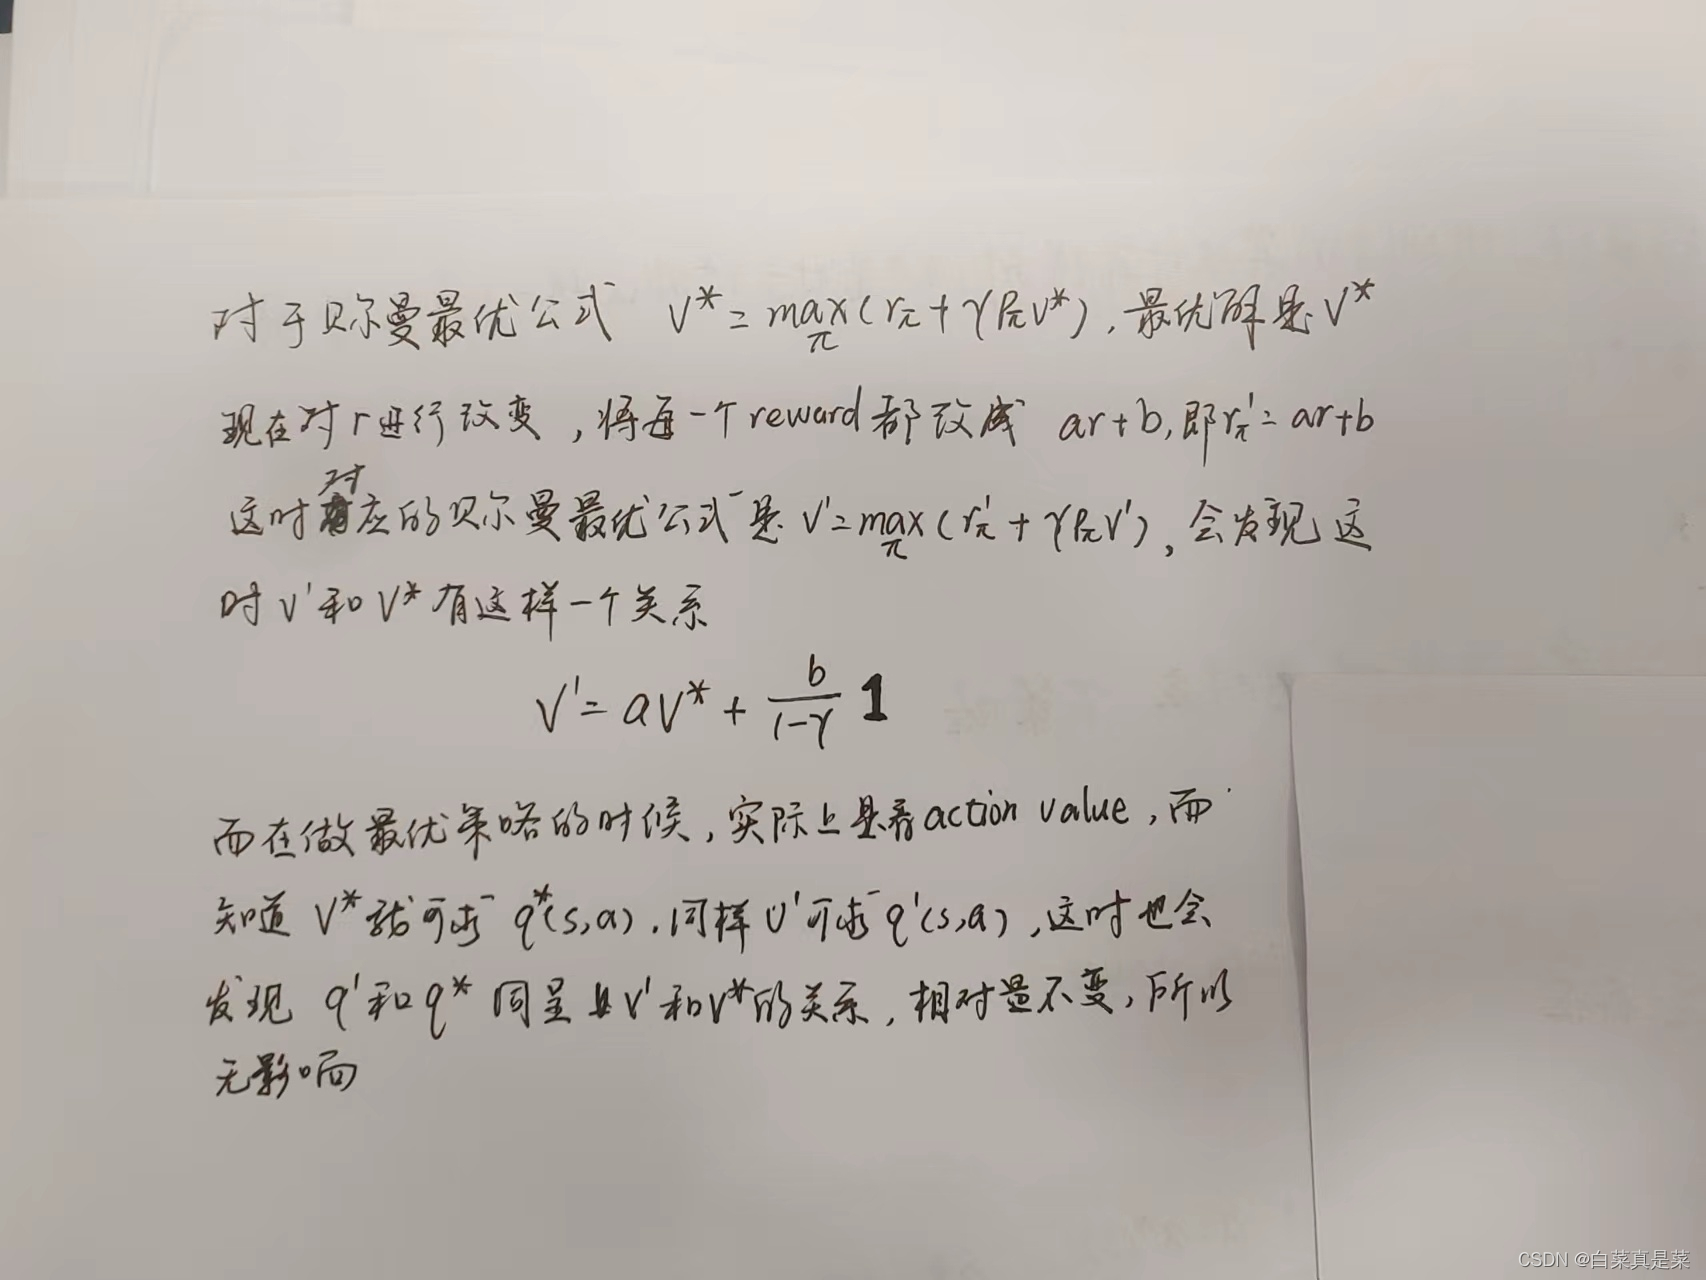 对于贝尔曼最优公式 V* = max_π (r_π + γP_πV*), 最优解是V*
现在对r进行改变，将每一个reward都改成 ar+b, 即r_π' = ar+b
这时对应的贝尔曼最优公式是 V' = max_π (r_π' + γP_πV'), 会发现这
时V'和V*有这样一个关系
V' = aV* + b/(1-γ) 1
而在做最优策略的时候，实际上是看action value，而
知道 V*就可求 q*(s,a). 同样V'可求q'(s,a), 这时也会
发现 q'和q* 同呈 V'和V*的关系，相对量不变，所以
无影响
CSDN @白菜真是菜